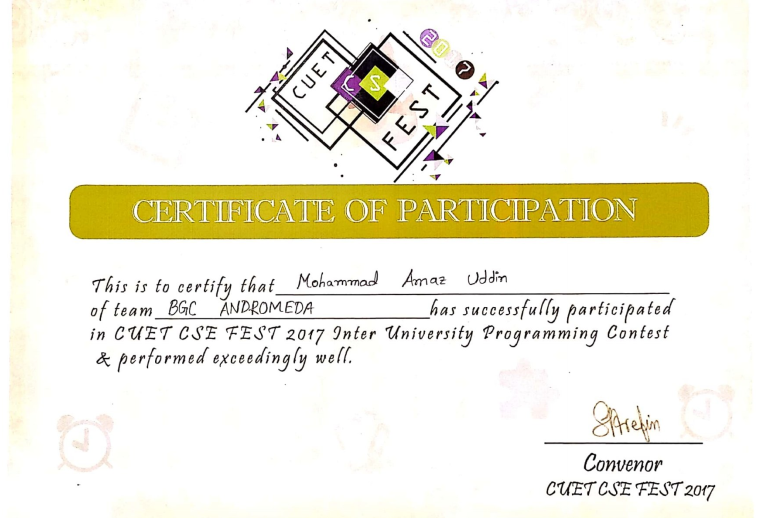 CUET
CS
FEST
2017
CERTIFICATE OF PARTICIPATION
This is to certify that Mohammad Amaz Uddin
of team BGC ANDROMEDA has successfully participated
in CUET CSE FEST 2017 Inter University Programming Contest
& performed exceedingly well.
SArefin
Convenor
CUET CSE FEST 2017